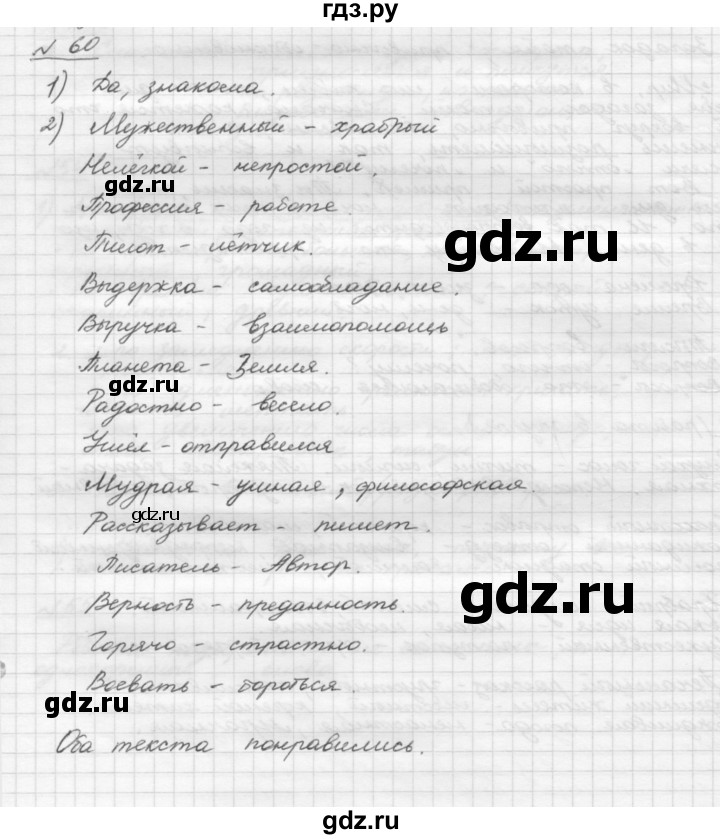 гдз.ру
№ 60
1) Да, знакома.
2) Мужественный – храбрый
Нелёгкой – непростой.
gdz.ru
Профессия – работе.
gdz.ru
Пилот – лётчик.
Выдержка – самообладание.
Выручка – взаимопомощь
Планета – Земля.
gdz.ru
Радостно – весело.
Ушёл – отправился
Мудрая – умная, философская.
gdz.ru
Рассказывает – пишет.
Писатель – Автор.
gdz.ru
Верность – преданность.
Горячо – страстно.
Воевать – бороться.
gdz.ru
Оба текста понравились.
gdz.ru